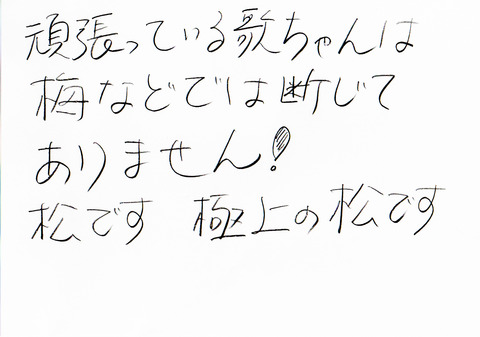 頑張っている歌ちゃんは
梅などでは断じて
ありません!
松です　極上の松です